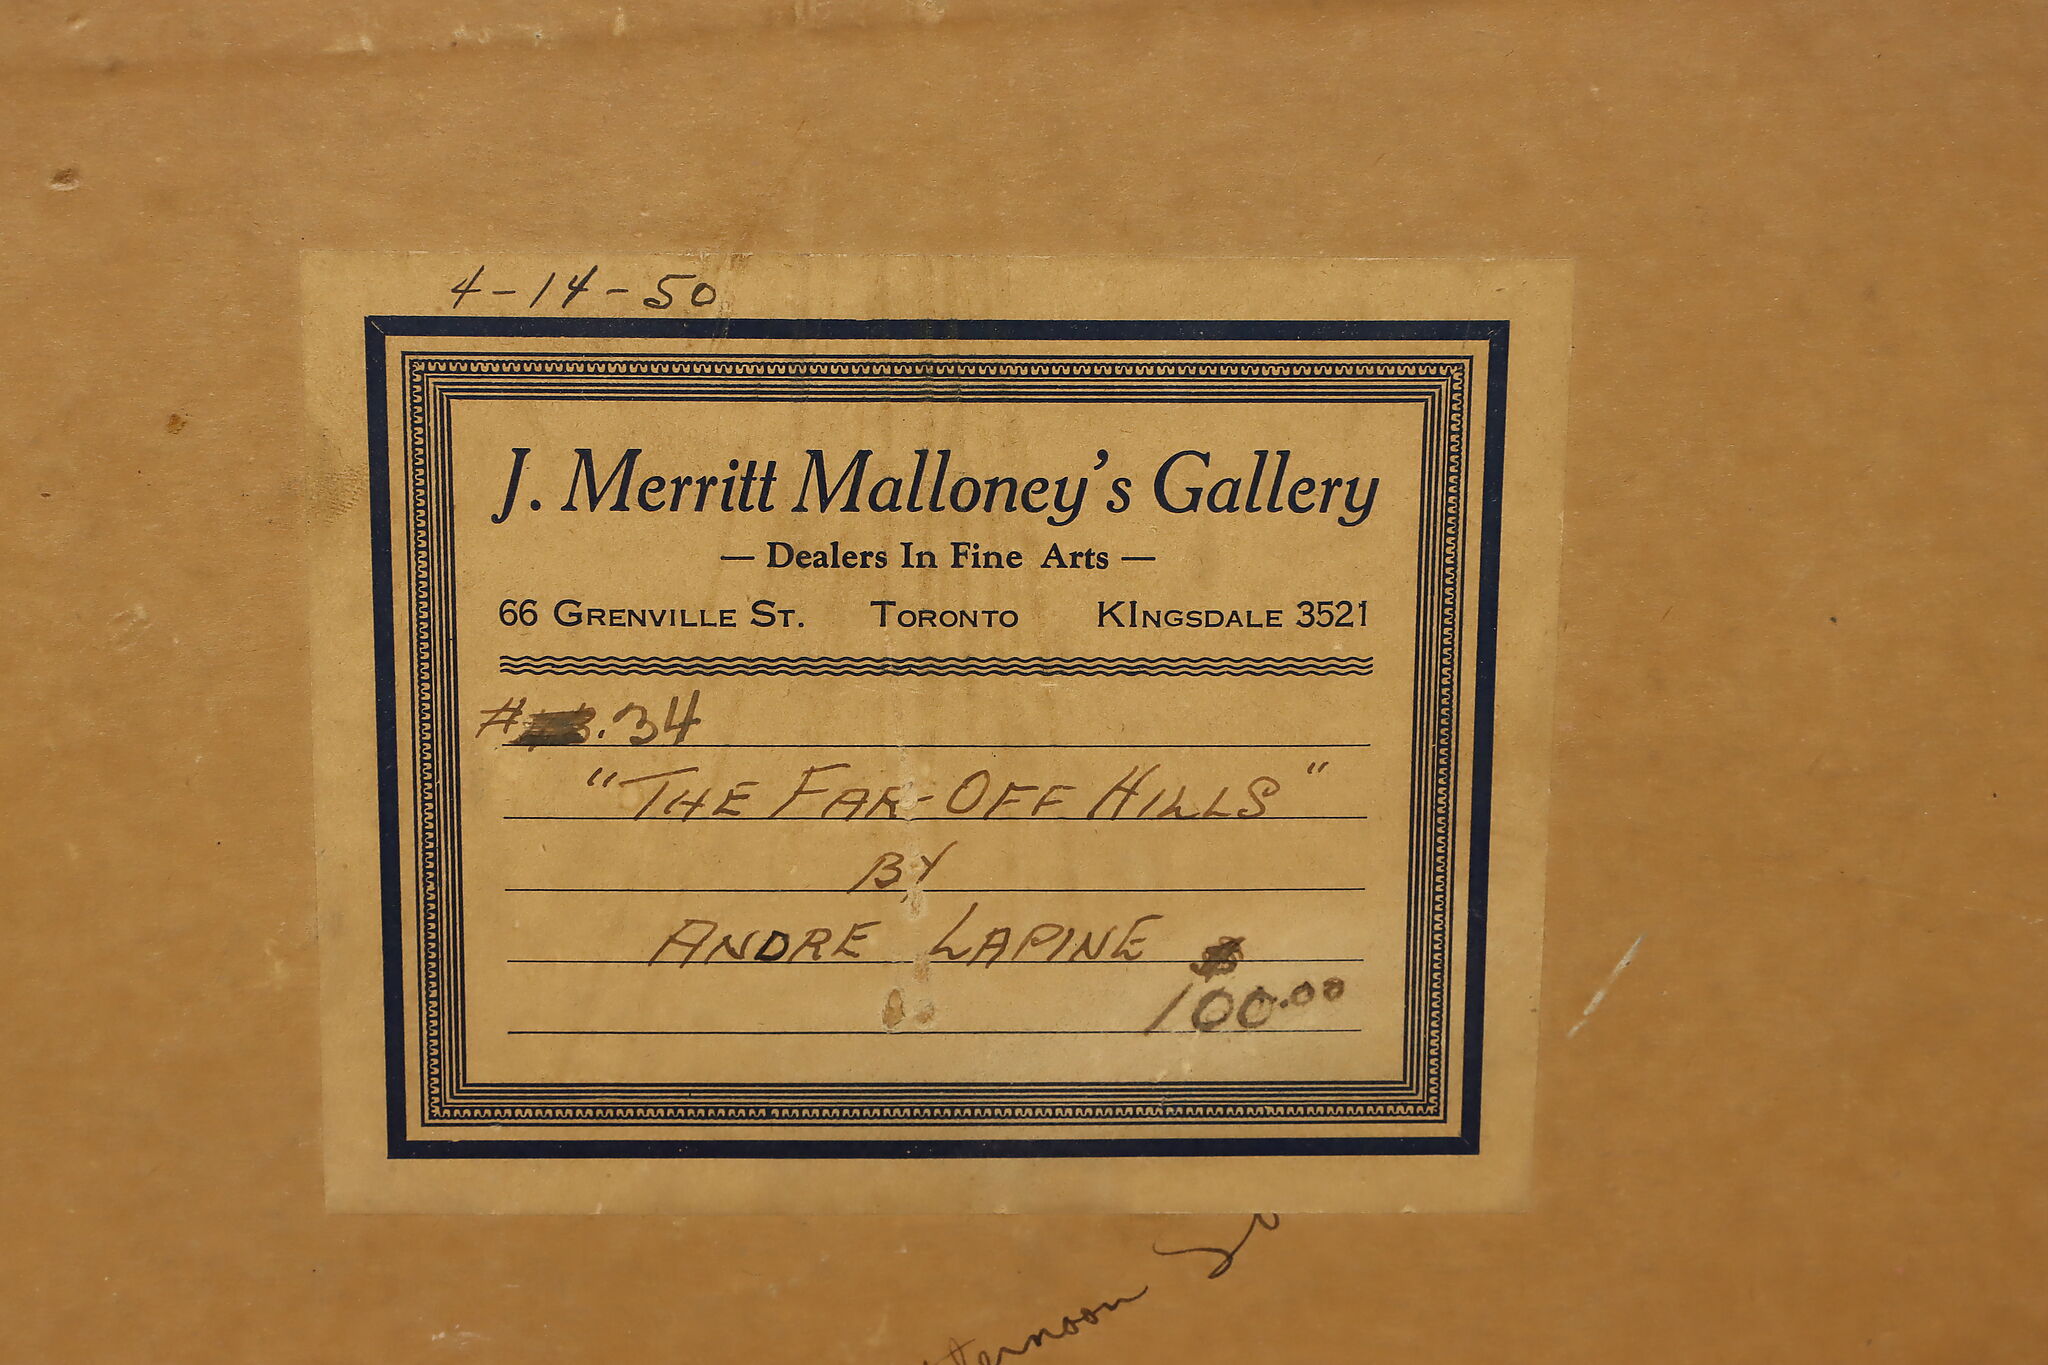 4-14-50
J. Merritt Malloney's Gallery
— Dealers In Fine Arts —
66 GRENVILLE ST. TORONTO KINGSDALE 3521
# .34
"THE FAR-OFF HILLS"
BY
ANDRE LAPINE $
100.00